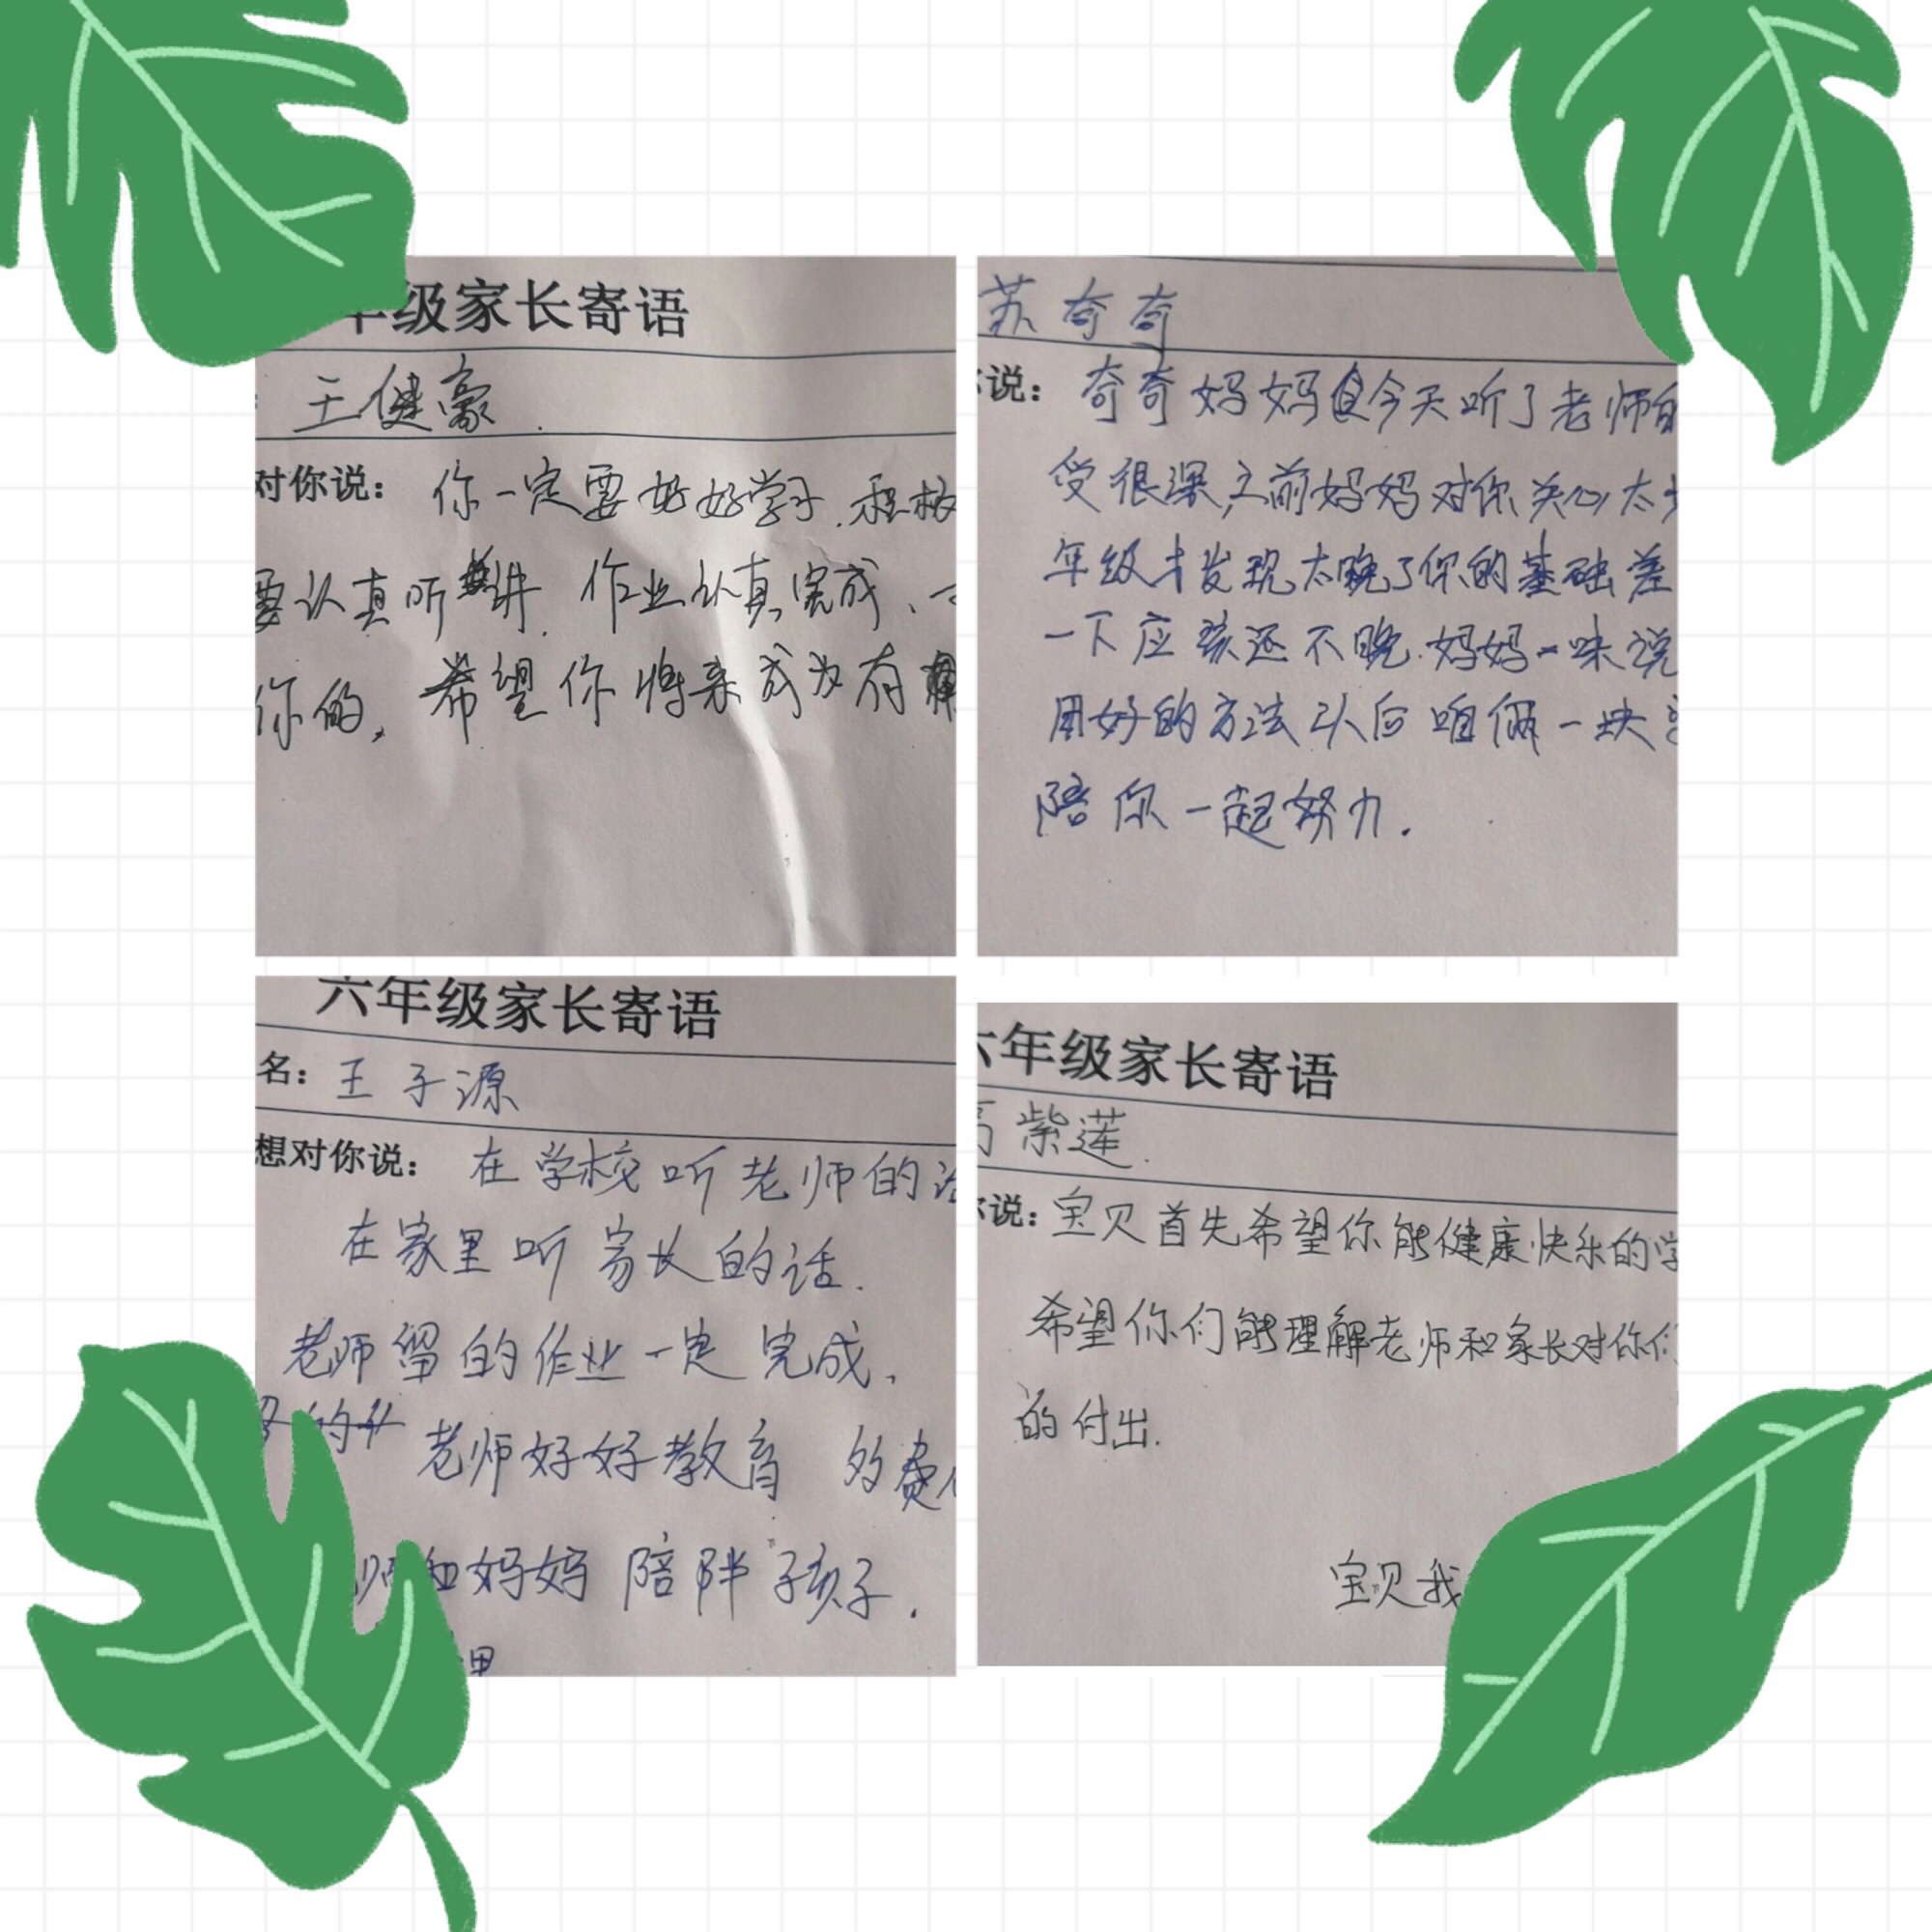 年级家长寄语
王健豪
对你说: 你一定要好好学习.积极
要认真听讲.作业认真完成、
你的,希望你将来成为有
苏奇奇
说: 奇奇妈妈今天听了老师的
受很深,之前妈妈对你关心太少
年级才发现太晚了你的基础差
一下应该还不晚.妈妈一味说
用好的方法以后咱俩一块学
陪你一起努力.
六年级家长寄语
名: 王子源
想对你说: 在学校听老师的话
在家里听家长的话.
老师留的作业一定完成.
老师好好教育 多费心
师和妈妈陪伴孩子.
六年级家长寄语
高紫莲.
说: 宝贝首先希望你能健康快乐的学
希望你们能理解老师和家长对你们
的付出.
宝贝我